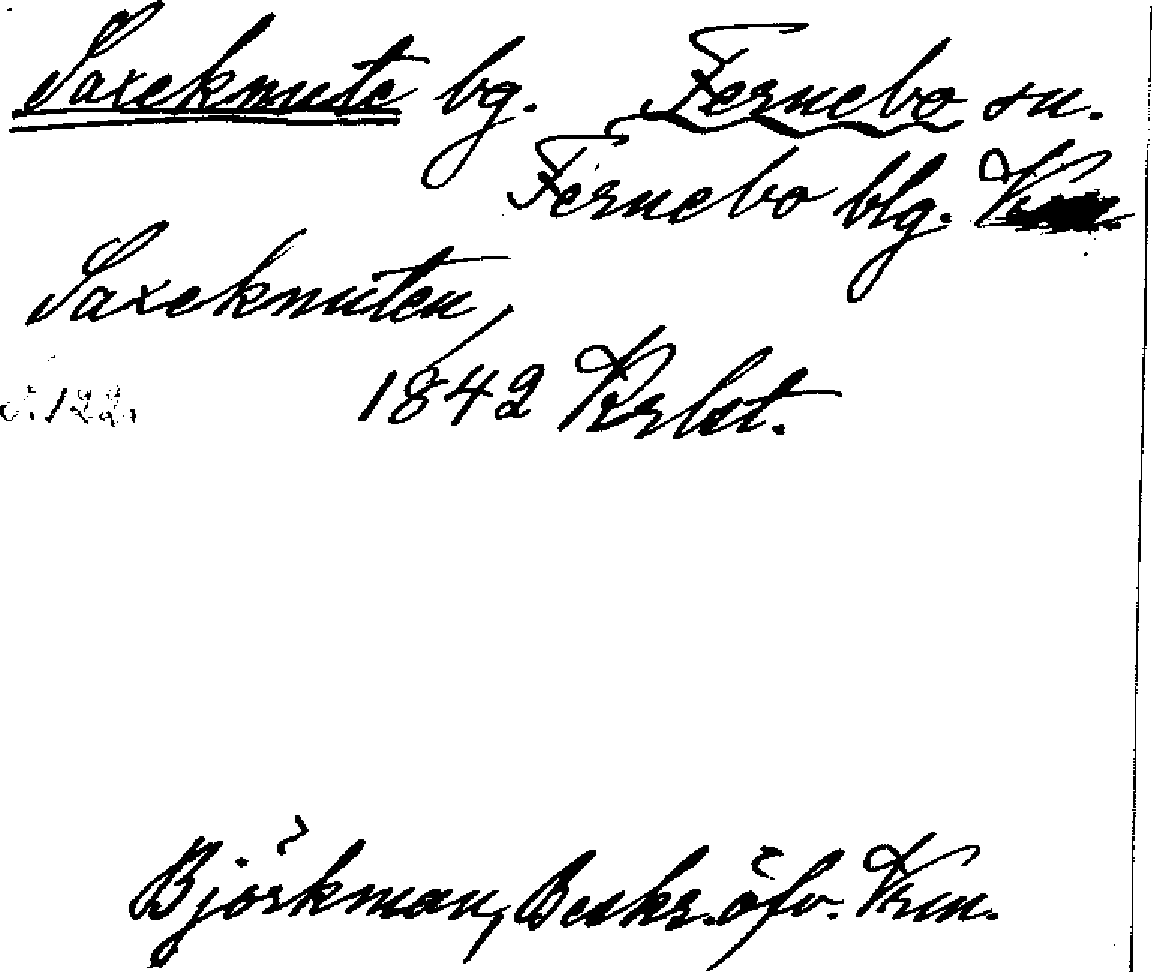 Saxeknute bg. Fernebo sn.
Fernebo blg. Vrm.
Saxeknuten,
1842 Krlst.
s. 122.
Björkman, Beskr. öfv. Vrm.